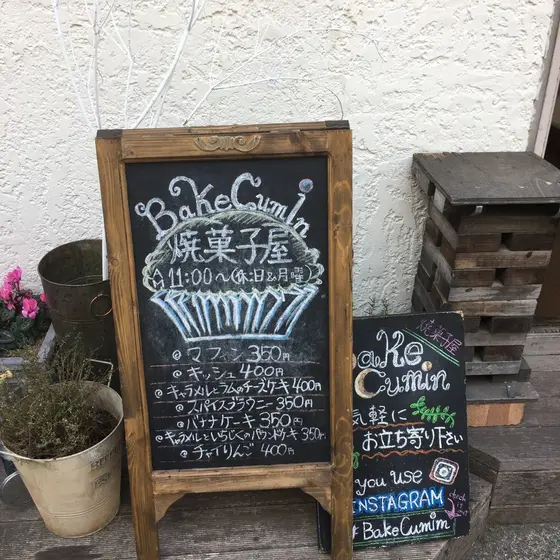 BaKeCumIn
焼菓子屋
11:00〜(休:日&月曜)
マフィン 350円
キッシュ 400円
キャラメルとラムのチーズケーキ 400円
スパイスブラウニー 350円
バナナケーキ 350円
キャラメルといちじくのパウンドケーキ 350円
チャイりんご 400円
焼菓子屋
BaKe
Cumin
気軽に
お立ち寄り下さい
you use
INSTAGRAM
#BakeCumim